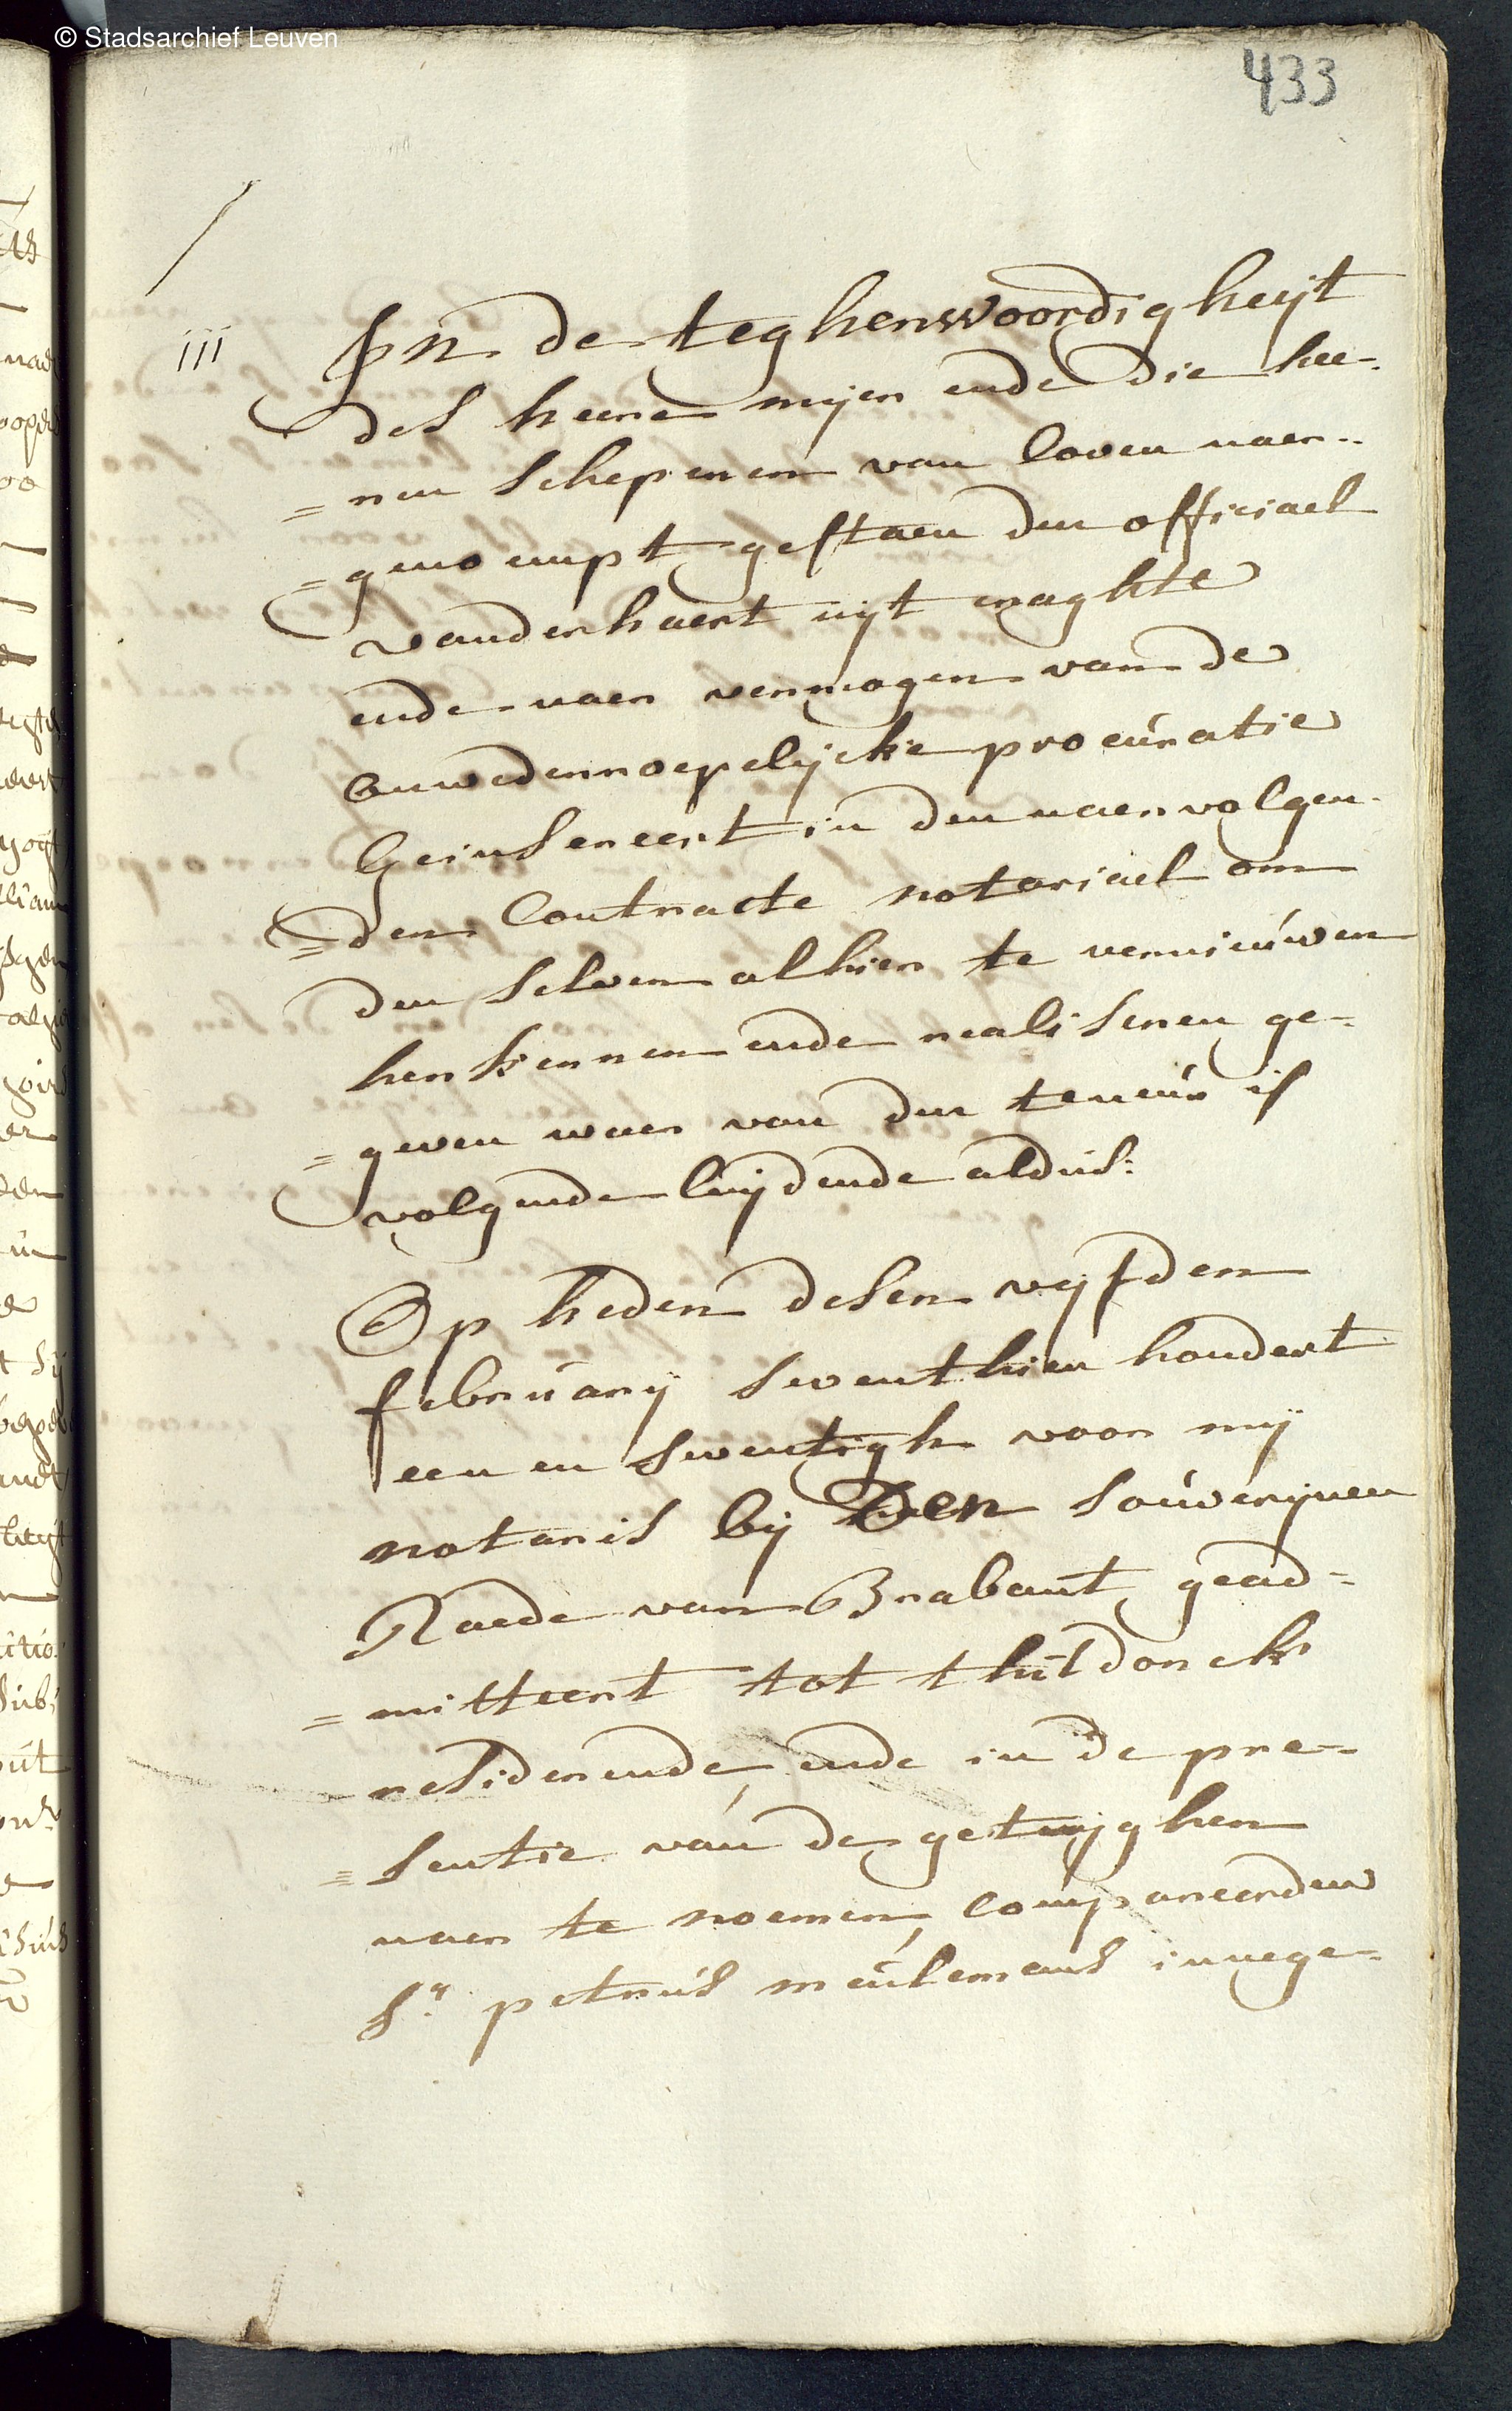 © Stadsarchief Leuven
433
iii
In de teghenwoordigheijt
des heere mijer ende die hee-
=ren schepenen van loven naer-
=genoempt gestaen den officiael
vanderhaert uijt craghte
ende naer vermogen van de
onwederroepelijcke procúratie
Geinsereert in den naervolgen-
=den Contracte notariael om
den selven alhier te vernieúwen
herkennen ende realiseren ge-
=geven waer van den teneúr is
volgende luijdende aldus:
Op heden desen vijfden
februarij seventhien hondert
een en seventigh voor mij
notaris bij Den soúverijnen
Raede van Brabant gead-
=mitteert tot thildonck
residerende, ende in de pre-
=sentie van de getuijghen
naer te noemen, Compareerden
Sr. petrus meúlemans innege-